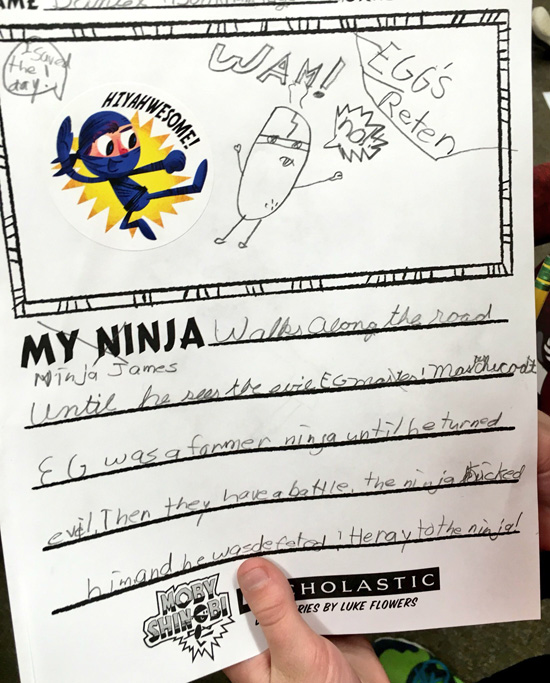 I Saved
the
day.
HIYAHWESOME!
WAM!
NO!
EGG'S
Reten
MY NINJA Walks along the road
Ninja James
Until he sees the evil EG master!
EG was a former ninja until he turned
evil. Then they have a battle. the ninja kicked
him and he was defeted! Heray to the ninja!
MOBY
SHINOBI
SCHOLASTIC
SERIES BY LUKE FLOWERS